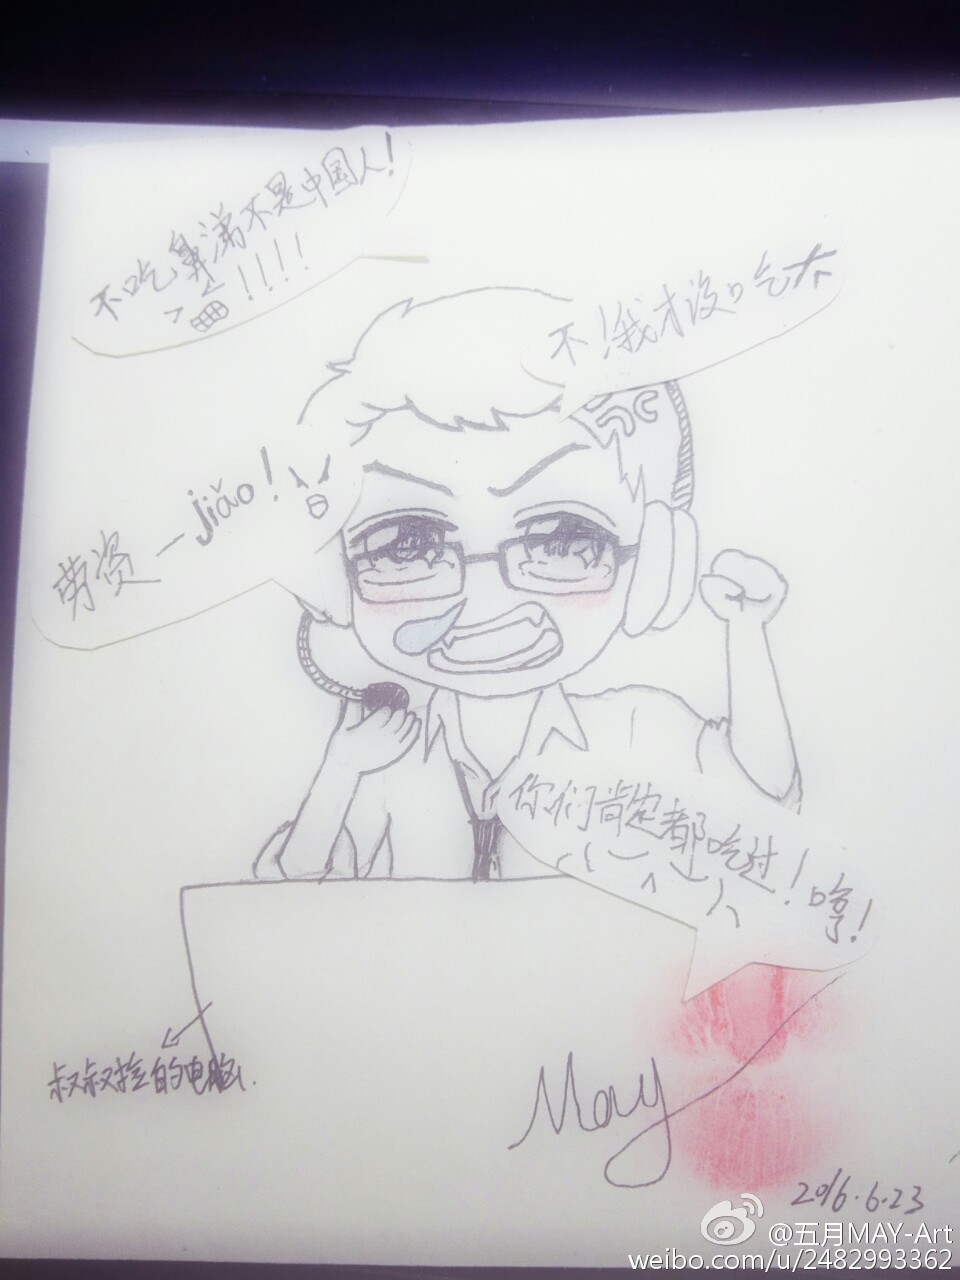 不吃鼻涕不是中国人!
!!!!
不!我才没口吃
劳资一jiǎo!
你们肯定都吃过!哼!
叔叔捡的电脑.
May
2016.6.23
@五月MAY-Art
weibo.com/u/2482993362